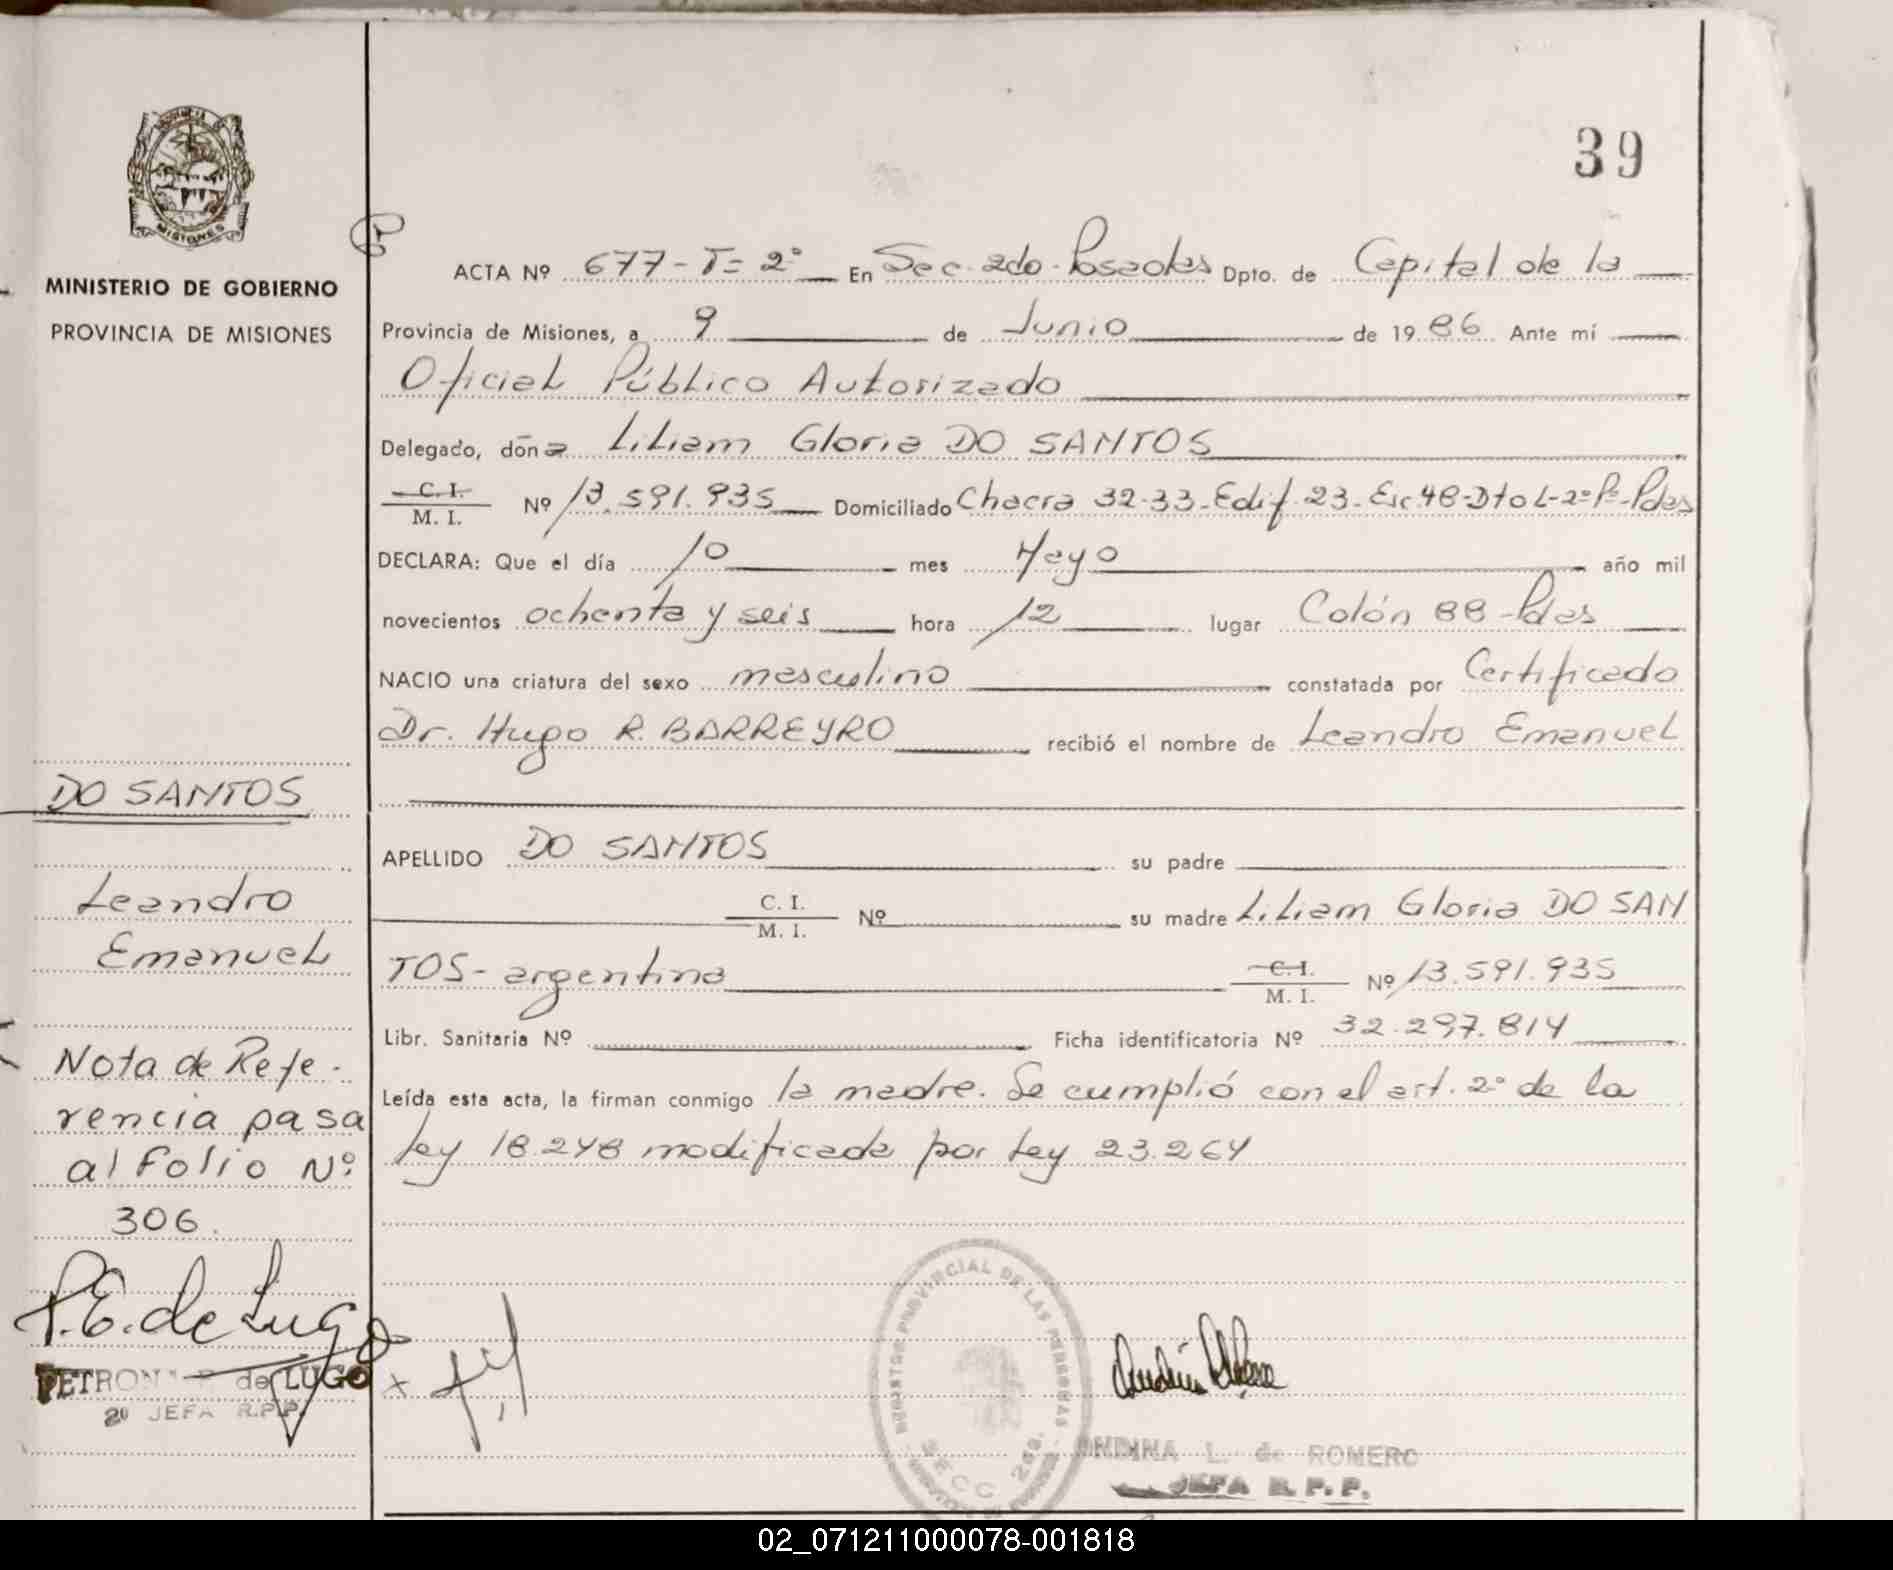 39
MINISTERIO DE GOBIERNO
PROVINCIA DE MISIONES
MISIONES
ACTA Nº 677-Tº 2º En Sec. 2do. Posadas Dpto. de Capital de la
Provincia de Misiones, a 9 de Junio de 1986 Ante mí
Oficial Público Autorizado
Delegado, doña Liliam Gloria DO SANTOS
C. I.
M. I. Nº 13.591.935 Domiciliado Chacra 32-33-Edif. 23-Esc. 48-Dto L-2º Pº-Pdas
DECLARA: Que el día 10 mes Mayo año mil
novecientos ochenta y seis hora 12 lugar Colón 88-Pdas
NACIO una criatura del sexo masculino constatada por Certificado
Dr. Hugo R. BARREYRO recibió el nombre de Leandro Emanuel
APELLIDO DO SANTOS su padre
C. I.
M. I. Nº su madre Liliam Gloria DO SAN
TOS- argentina C. I.
M. I. Nº 13.591.935
Libr. Sanitaria Nº Ficha identificatoria Nº 32.297.814
Leída esta acta, la firman conmigo la madre. Se cumplió con el art. 2º de la
Ley 18.248 modificada por Ley 23.264
DO SANTOS
Leandro
Emanuel
Nota de Refe-
rencia pasa
al Folio Nº
306.
P.E. de Lugo
PETRONA de LUGO
2º JEFA R.P.P.
REGISTRO PROVINCIAL DE LAS PERSONAS
SECC 2da.
ANDINA L. de ROMERO
JEFA R. P. P.
02_071211000078-001818